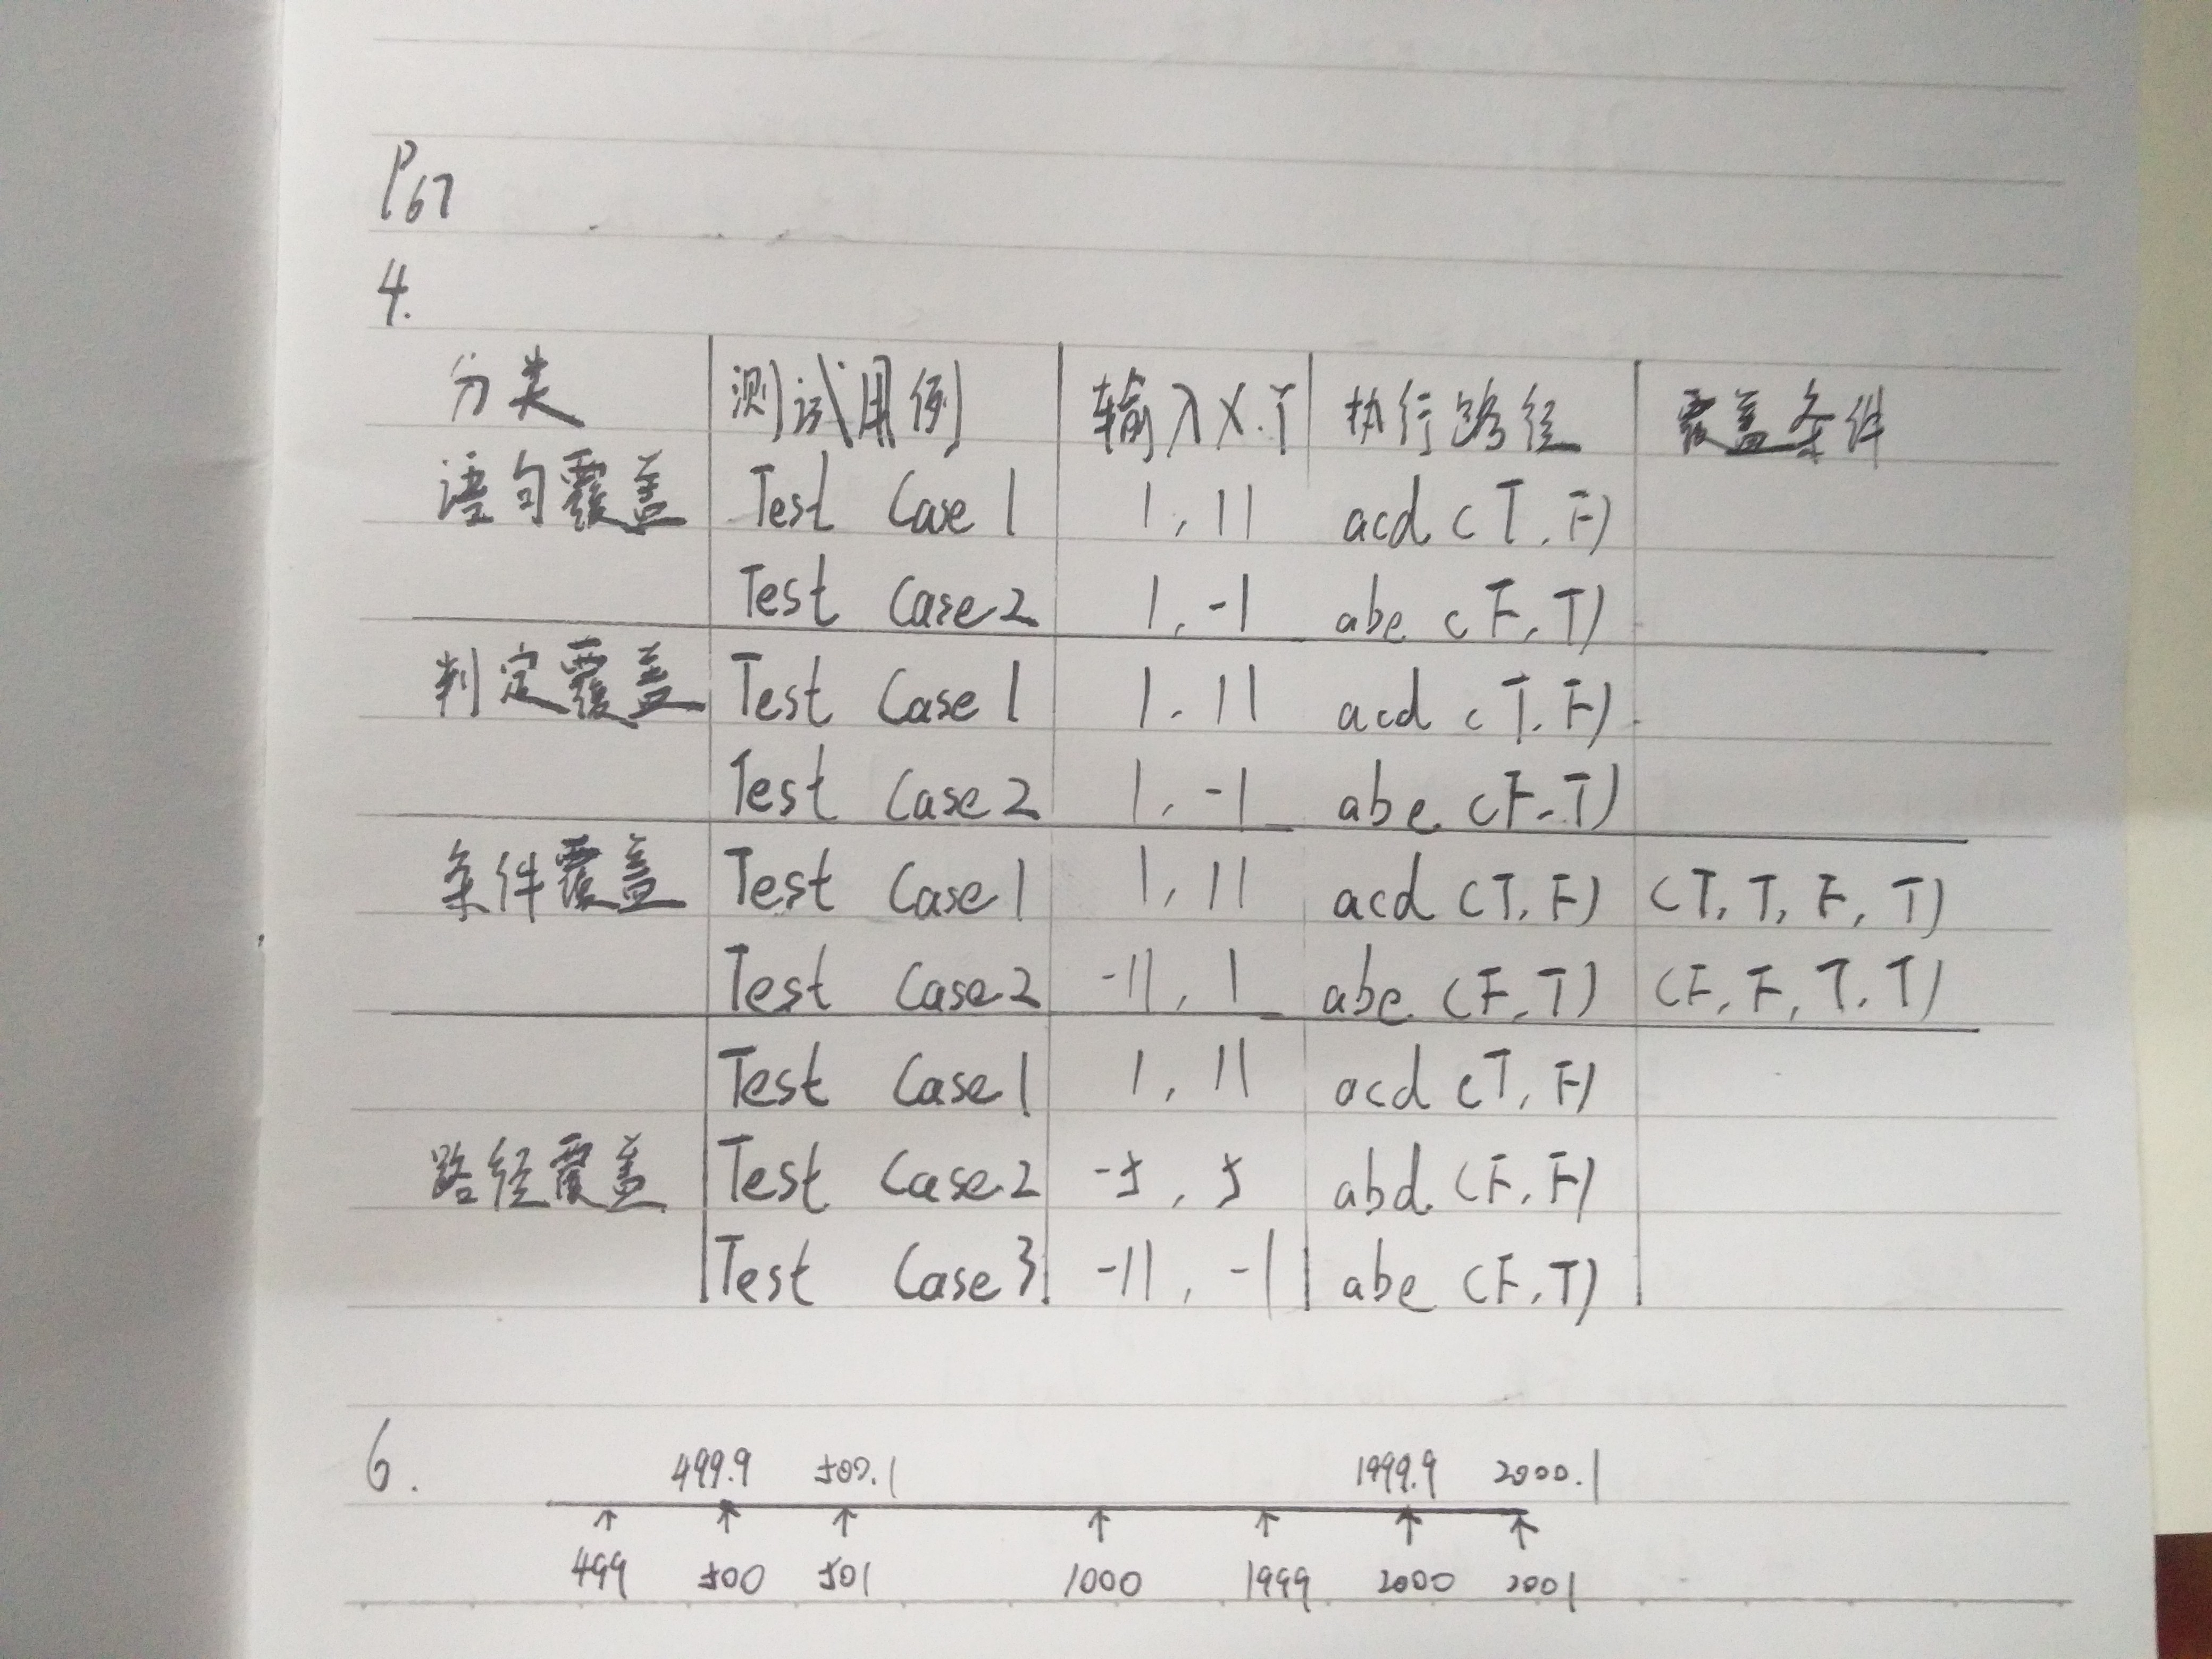 P67
4.
分类 测试用例 输入X.Y 执行路径 覆盖条件
语句覆盖 Test Case 1 1, 11 acd (T, F)
Test Case 2 1, -1 abe (F, T)
判定覆盖 Test Case 1 1, 11 acd (T, F)
Test Case 2 1, -1 abe (F, T)
条件覆盖 Test Case 1 1, 11 acd (T, F) (T, T, F, T)
Test Case 2 -11, 1 abe (F, T) (F, F, T, T)
Test Case 1 1, 11 acd (T, F)
路径覆盖 Test Case 2 -5, 5 abd (F, F)
Test Case 3 -11, -1 abe (F, T)
6. 499.9 500.1 1999.9 2000.1
499 500 501 1000 1999 2000 2001